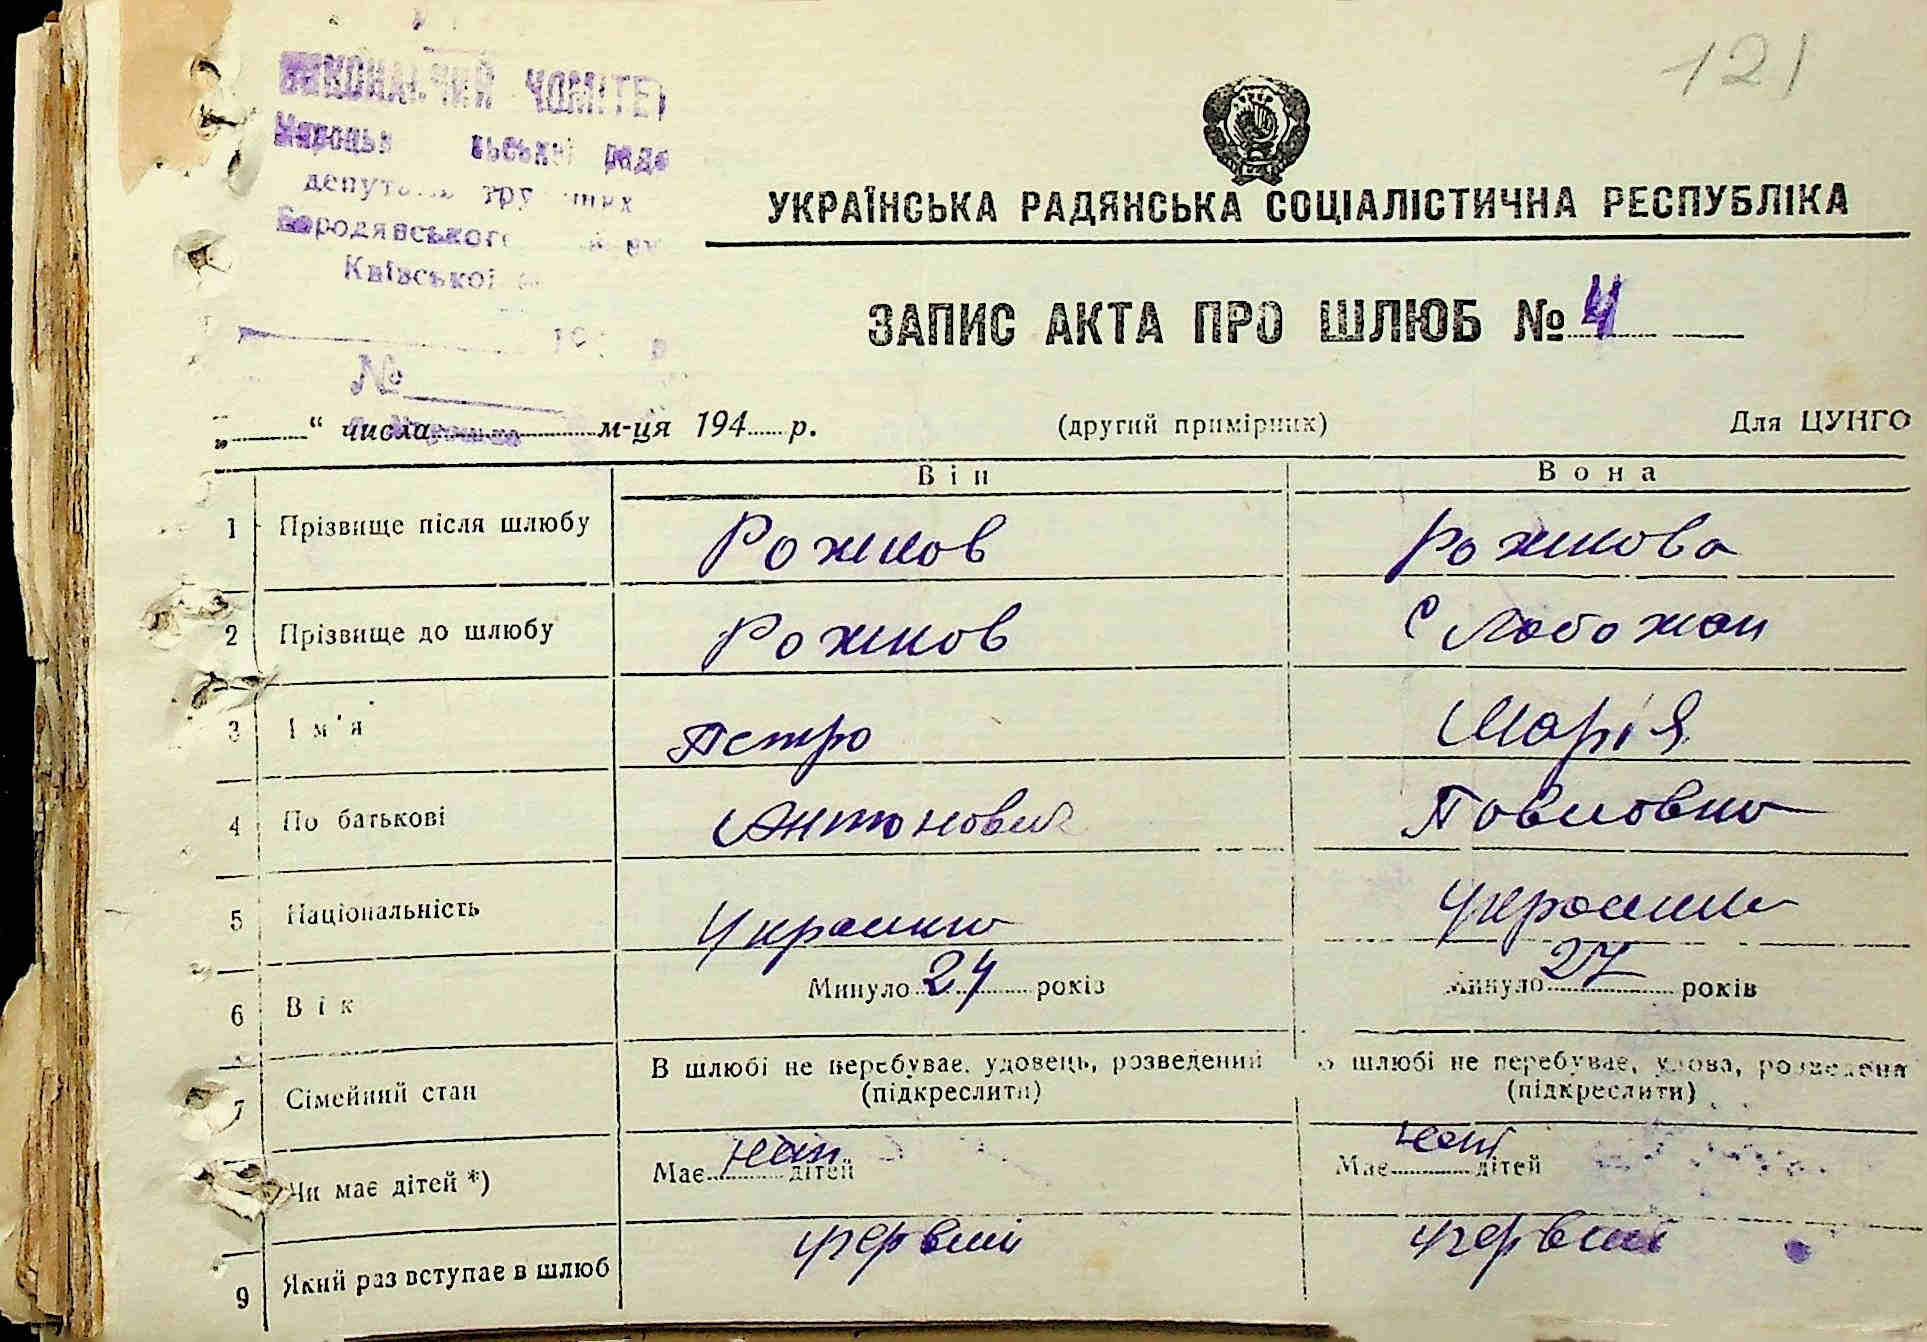 121
ВИКОНАВЧИЙ КОМІТЕТ
ради
депутатів трудящих
Бородянського
Київської
УКРАЇНСЬКА РАДЯНСЬКА СОЦІАЛІСТИЧНА РЕСПУБЛІКА
ЗАПИС АКТА ПРО ШЛЮБ № 4
194 р.
№
„ “ числа м-ця 194 р. (другий примірник) Для ЦУНГО
Він Вона
1 Прізвище після шлюбу Рожков Рожкова
2 Прізвище до шлюбу Рожков Слобожан
3 Ім'я Петро Марія
4 По батькові Антонович Павловна
5 Національність
6 Вік Минуло 24 років Минуло 27 років
7 Сімейний стан В шлюбі не перебуває, удовець, розведений (підкреслити) В шлюбі не перебуває, удова, розведена (підкреслити)
Чи має дітей *) Має дітей Має дітей
9 Який раз вступає в шлюб первий первий